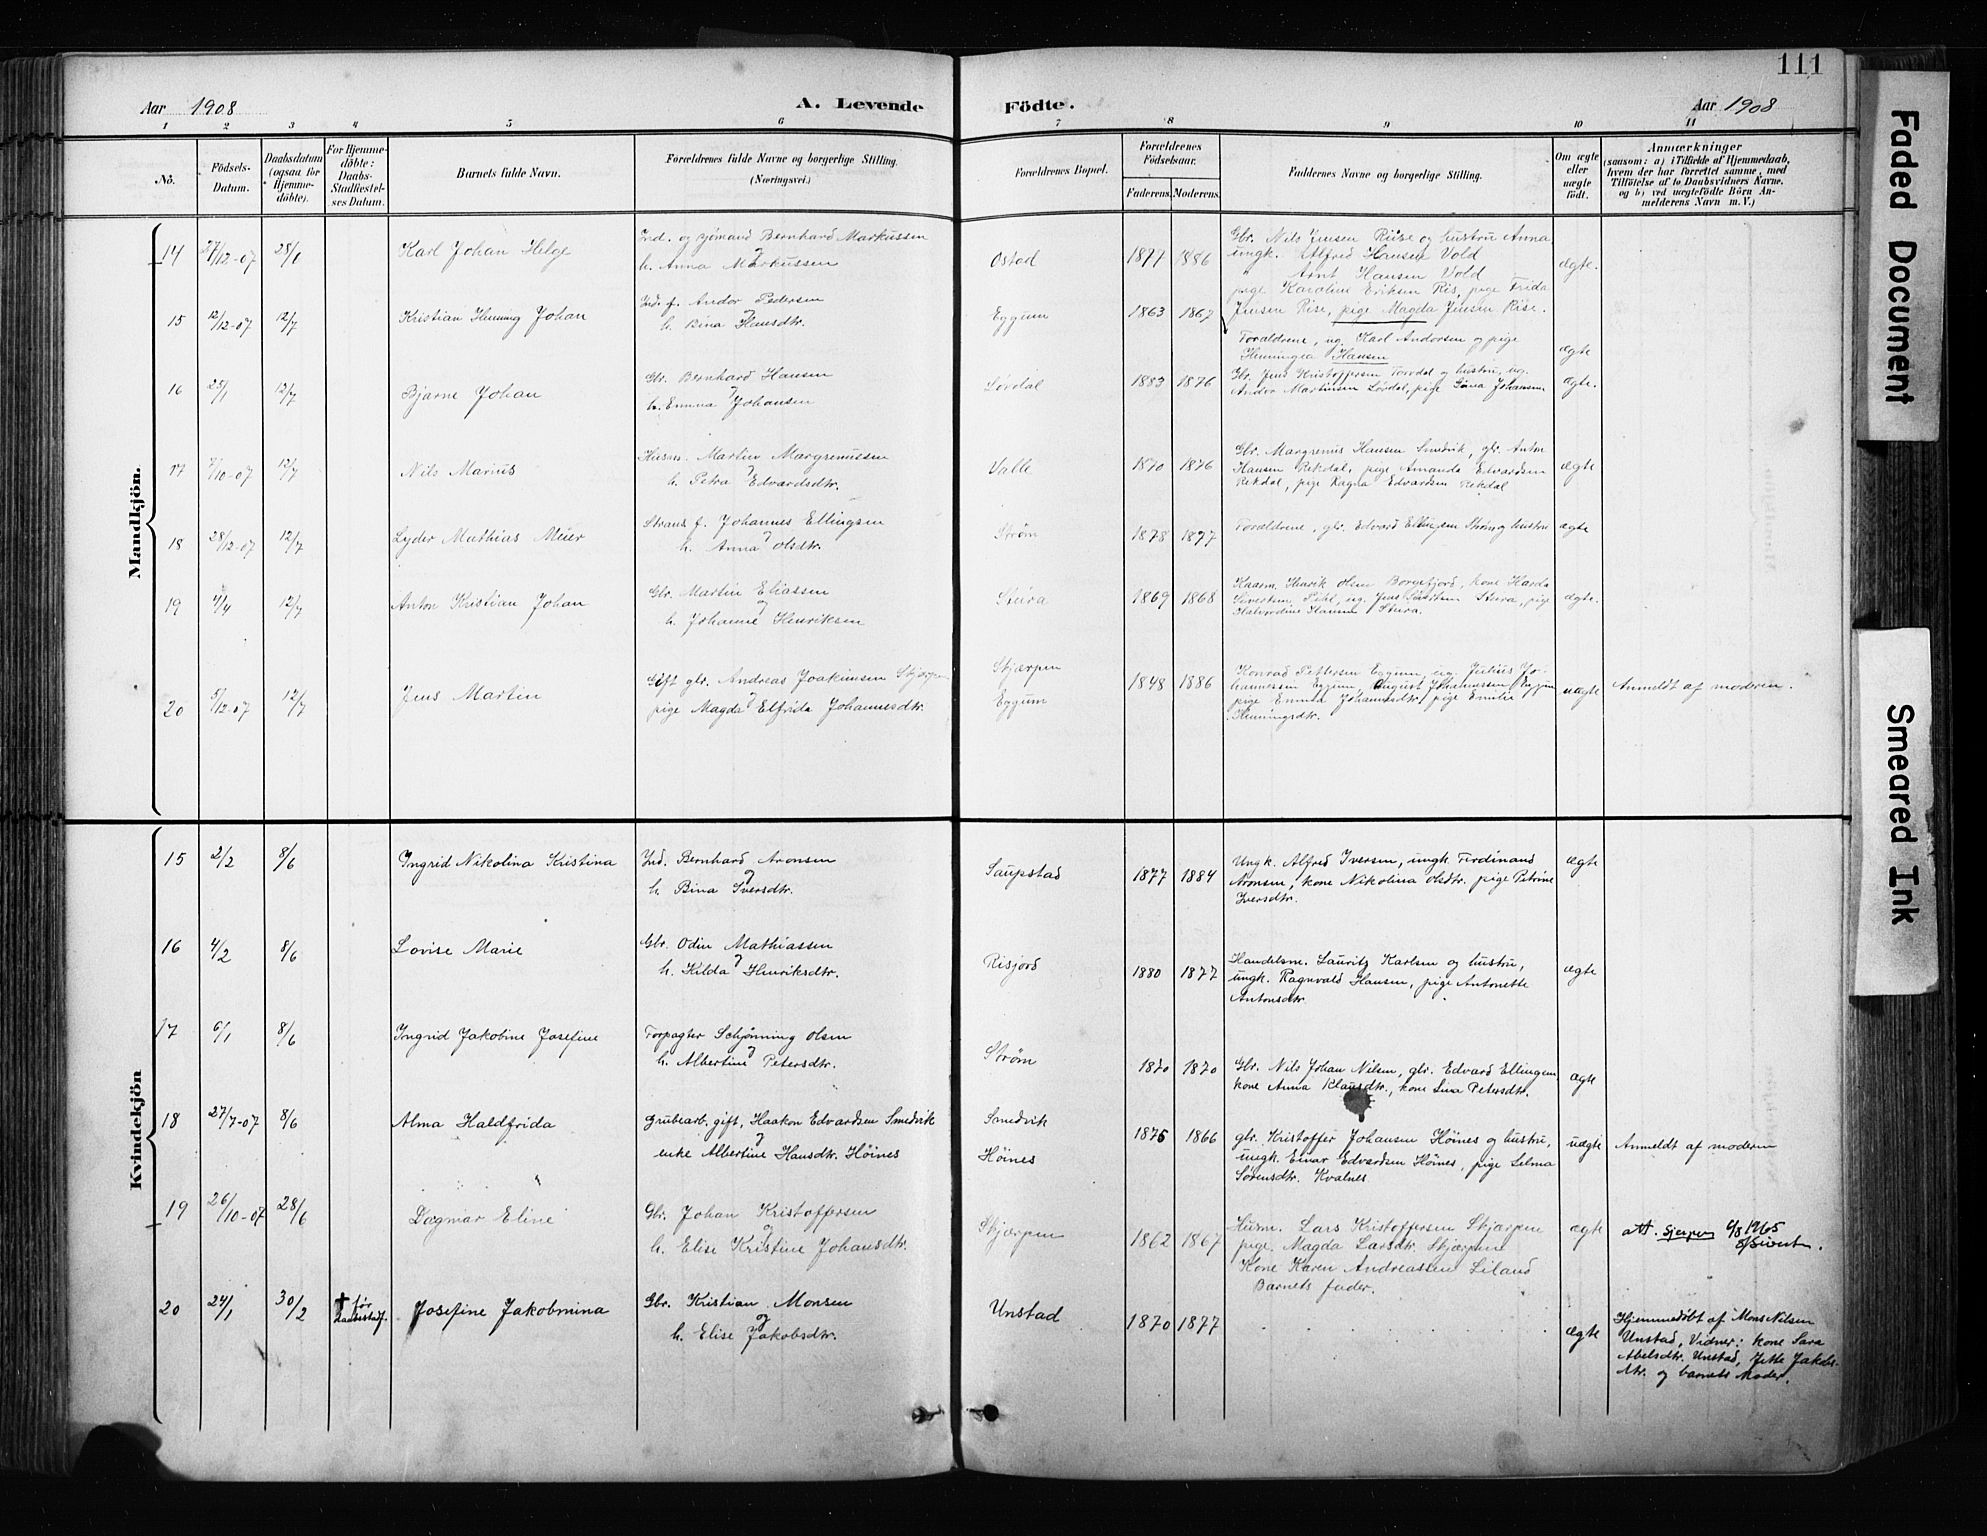 111
Aar 1908
A. Levende Födte.
Aar 1908
1 2 3 4 5 6 7 8 9 10 11
No.
Födsels-Datum.
Daabsdatum (ogsaa for Hjemmedöbte).
For Hjemmedöbte: Daabs-Stadfæstelses Datum.
Barnets fulde Navn.
Forældrenes fulde Navne og borgerlige Stilling. (Næringsvei.)
Forældrenes Bopæl.
Forældrenes Födselsaar.
Faderens. Moderens.
Faddernes Navne og borgerlige Stilling.
Om ægte eller uægte födt.
Anmærkninger
(saasom: a) i Tilfælde af Hjemmedaab, hvem der har forrettet samme, med Tilföielse af to Daabsvidners Navne, og b) ved uægtefödte Börn Anmelderens Navn m. V.)
Mandkjön.
14 27/12-07 28/1 Karl Johan Helge
Ind. og sømand Bernhard Markussen
h. Anna Markussen
Ostad 1877 1886
Gbr. Nils Jensen Riise og hustru Anna
ungk. Alfred Hansen Vold
Arnt Hansen Vold
pige Karoline Eriksen Ris, pige Frida
Jensen Rise, pige Magda Jensen Rise.
ægte.
15 12/12-07 12/7 Kristian Henning Johan
Ind. f. Andor Pedersen
h. Bina Hansdtr.
Eggum 1863 1867
Forældrene, ug. Karl Andorsen og pige
Henningea Hansen
ægte
16 25/1 12/7 Bjarne Johan
Gbr. Bernhard Hansen
h. Emma Johansen
Løvdal 1883 1876
Gbr. Jens Kristoffersen Torvdal og hustru, ug.
Andor Martinsen Lövdal, pige Gina Johansen
ægte.
17 7/10-07 12/7 Nils Marius
Husm. Martin Margrenussen
h. Petra Edvardsdtr.
Valle 1870 1876
Gbr. Margrenus Hansen Smedvik, gbr. Anton
Hansen Rekdal, pige Amanda Edvardsen
Rekdal, pige Ragna Edvardsen Rekdal
ægte
18 28/12-07 12/7 Lyder Mathias Meier
Strands. f. Johannes Ellingsen
h. Anna Olsdtr.
Strøm 1878 1877
Forældrene, gbr. Edvard Ellingsen Strøm og hustru
ægte
19 4/4 12/7 Anton Kristian Johan
Gbr. Martin Eliassen
og
h. Johanne Henriksen
Stura 1869 1868
Kaarm. Henrik Olsen Borgefjord, kone Harda
Sivertsen Pihl, ug. Jens Stura, pige
Halvardine Hansen Stura.
ægte.
20 5/12-07 12/7 Jens Martin
Gift gbr. Andreas Joakimsen Skjærpen
pige Magda Elfrida Johannesdtr.
Skjærpen
Eggum
1848 1886
Konrad Pettersen Eggum, ug. Julius Jo-
hannessen Eggum, August Johannessen, Eggum
pige Emma Johannesdtr, pige Emilie
Henningsdtr.
uægte
Anmeldt af moderen.
Kvindekjön
15 2/2 8/6 Ingrid Nikolina Kristina
Ind. Bernhard Aronsen
og
h. Bina Iversdtr.
Saupstad 1877 1884
Ungk. Alfred Iversen, ungk. Ferdinand
Aronsen, kone Nikolina Olsdtr. pige Petrine
Iversdtr.
ægte
16 4/2 8/6 Lovise Marie
Gbr. Odin Mathiassen
h. Hilda Henriksdtr.
Risjord 1880 1877
Handelsm. Lauritz Karlsen og hustru,
ungk. Ragnvald Hansen, pige Antonette
Antonsdtr.
ægte
17 6/1 8/6 Ingrid Jakobine Josefine
Forpagter Schjønning Olsen
h. Albertine Petersdtr.
Strøm 1870 1870
Gbr. Nils Johan Nilsen, gbr. Edvard Ellingsen
kone Anna Klausdtr., kone Lina Petersdtr.
ægte
18 27/7-07 8/6 Alma Haldfrida
Grubearb. gift, Haakon Edvardsen Smedvik
og
enke Albertine Hansdtr. Höines
Smedvik
Höines
1875 1866
gbr. Kristoffer Johansen Höines og hustru,
ungk. Einar Edvardsen Höines, pige Selma
Sørensdtr. Kvalnes.
uægte
Anmeldt af moderen
19 26/10-07 28/6 Dagmar Eline
Gbr. Johan Kristoffersen
og
h. Elise Kristine Johansdtr.
Skjærpen 1862 1867
Husm. Lars Kristoffersen Skjærpen
pige. Magda Larsdtr. Skjærpen
Kone Karen Andreassen Liland
Barnets fader.
ægte
att. Sjerpen 6/8 1965
20 24/1 30/2 † før Daabsstadf. Josefine Jakobmina
Gbr. Kristian Monsen
og
h. Elise Jakobsdtr.
Unstad 1870 1877
ægte
Hjemmedöbt af Mons Nilsen
Unstad, Vidner: kone Sara
Abelsdtr. Unstad, Jette Jakobs-
dtr. og barnets Moder.
Faded Document
Smeared Ink